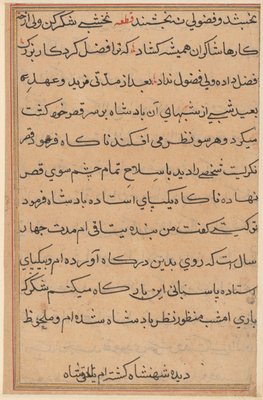 نخشبد و فضولی نه نخشند قطعه نخشبی شکر کن ولی آخر
کارها شاکران همیشه کشاد کرترا فضل کرد کار بزرک
فضل داده ولی فضول نداد بعد از مدتی مزید و عهدی
بعید شبی از شبهای آن بادشاه بر سر قصر خود کشت
میکرد و هر سو نظر می افکند ناکاه فرود قصر
نکریست شخصی را دید با سلاح تمام چشم سوی قصر
نهاده ناکاه بیکپای استاده بادشاه فرمود
تو کیستی کفت من بنده یتاقی ام مدت چهار
سال است که روی بدین درکاه آورده ام و بیکپای
استاده پاسبانی این بارکاه میکنم شکر که
باری امشب منظور نظر بادشاه شده ام و ملحوظ
دیده شهنشاه کشته ام